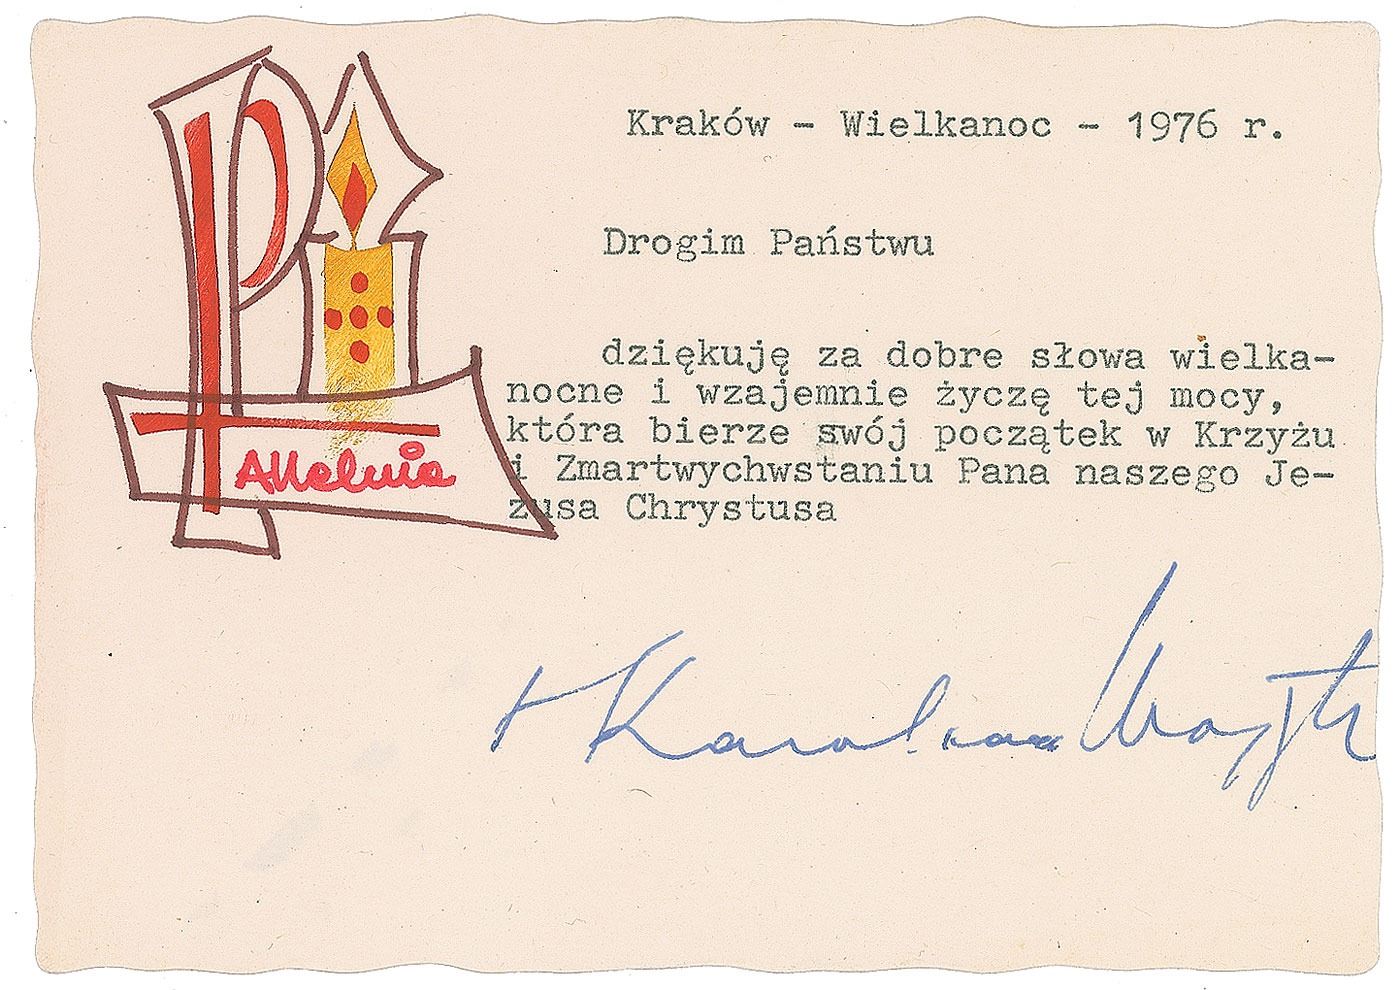 Kraków - Wielkanoc - 1976 r.
Drogim Państwu
dziękuję za dobre słowa wielka-
nocne i wzajemnie życzę tej mocy,
która bierze swój początek w Krzyżu
i Zmartwychwstaniu Pana naszego Je-
zusa Chrystusa
Alleluia
+ Karol card Wojty